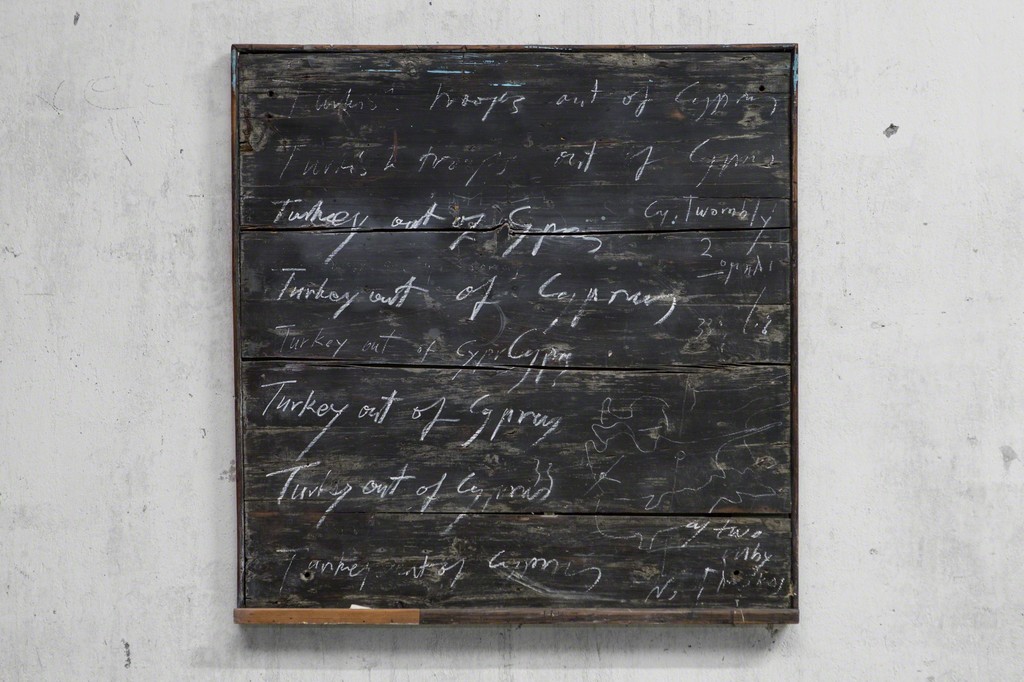 Turkish troops out of Cyprus
Turkish troops out of Cyprus
Turkey out of Cyprus
Cy. Twombly
2
Turkey out of Cyprus
Turkey out of Cypr Cypr
Turkey out of Cyprus
Turkey out of Cyprus
cy two
mbly
Turkey out of Cyprus